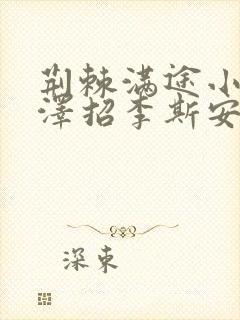 荆棘满途小
泽招李斯安
深束